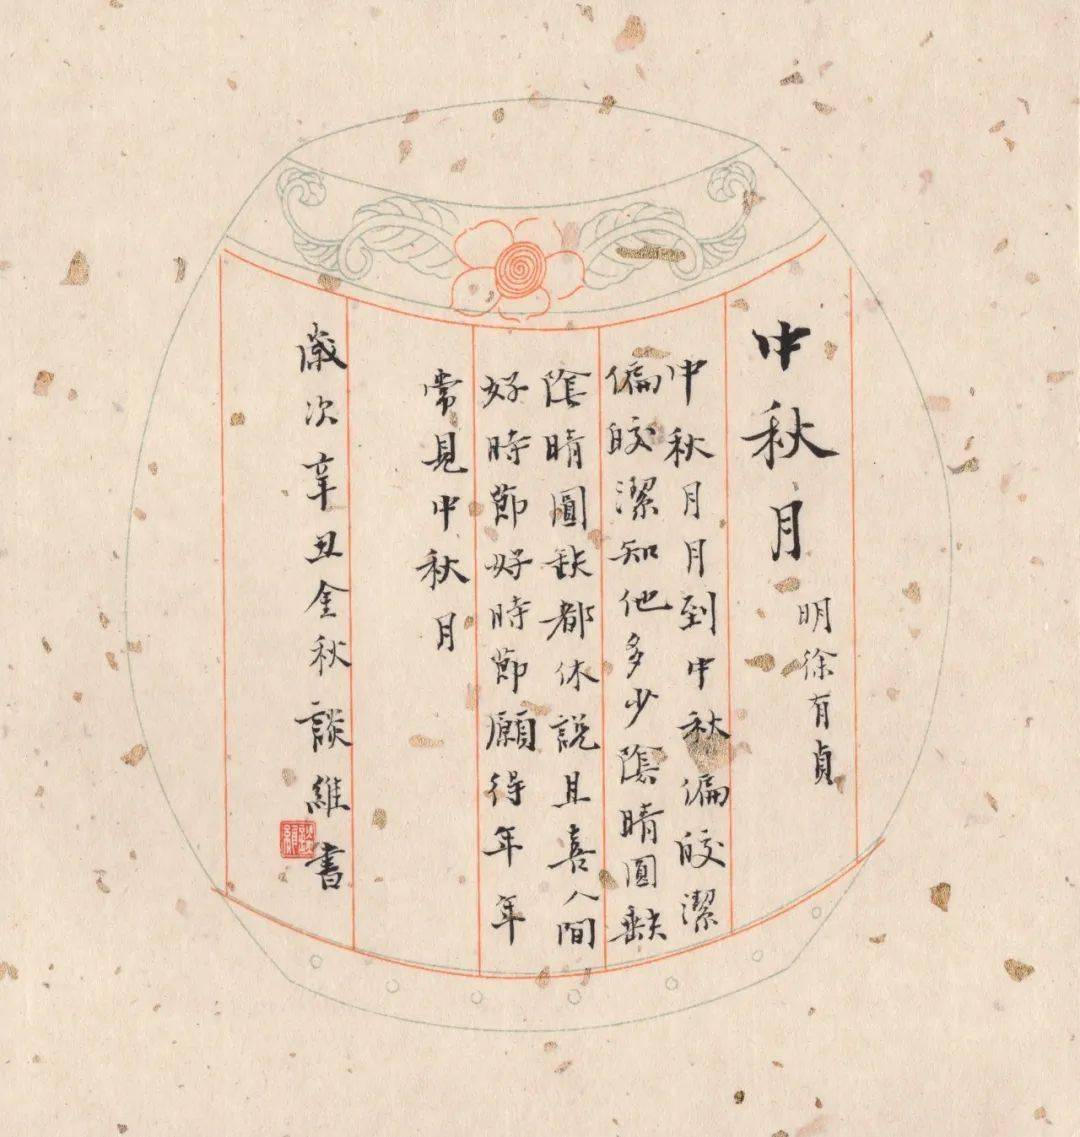 中秋月
明徐有貞
中秋月月到中秋偏皎潔
偏皎潔知他多少陰晴圓缺
陰晴圓缺都休説且喜人間
好時節好時節願得年年
常見中秋月
歲次辛丑金秋談維書